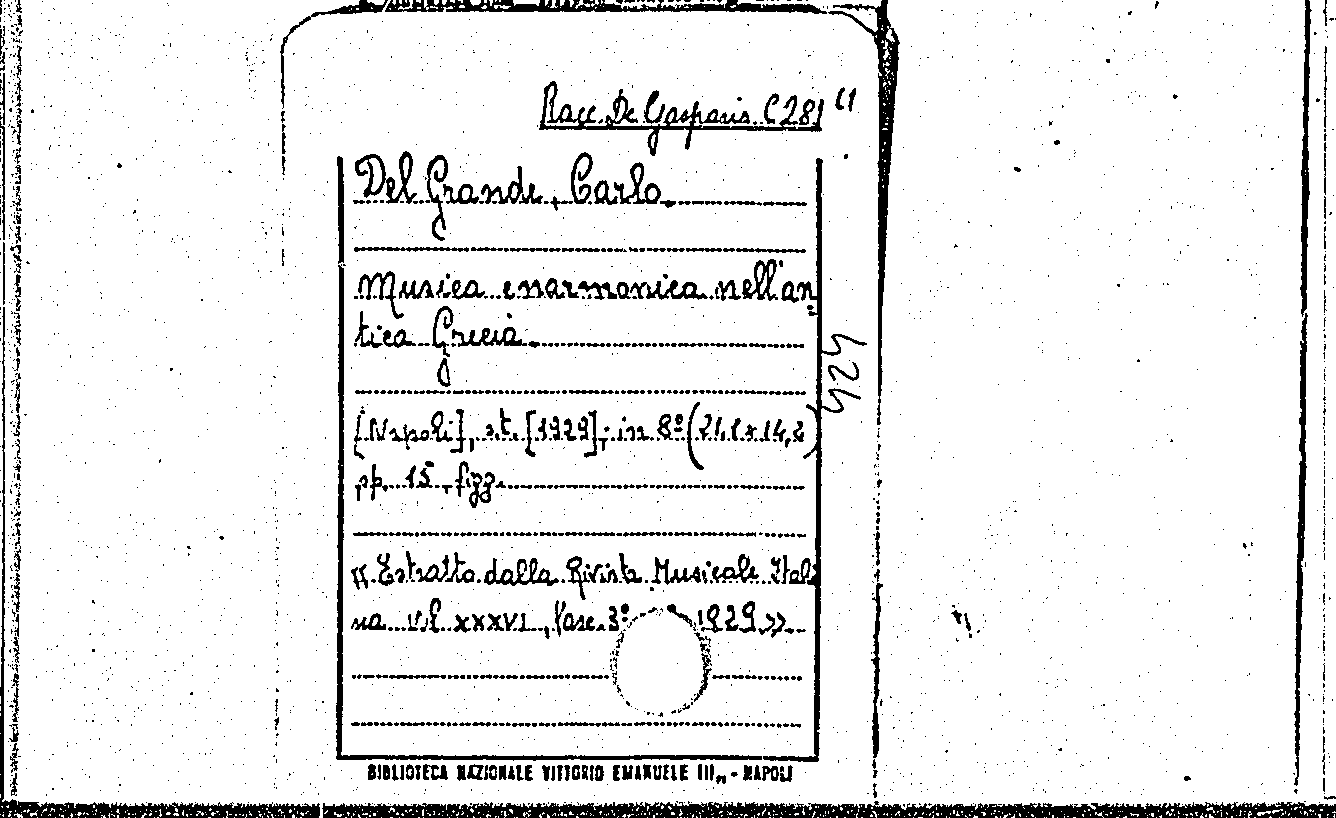 Racc. De Gasparis C 281 (1
Del Grande, Carlo.
Musica enarmonica nell'an
tica Grecia.
[Napoli], s.t. [1929]; in 8º (21,1 x 14,2)
pp. 15, figg.
« Estratto dalla Rivista Musicale Italia
na vol. XXXVI, fasc. 3º 1929 ».
424
BIBLIOTECA NAZIONALE VITTORIO EMANUELE III,, - NAPOLI